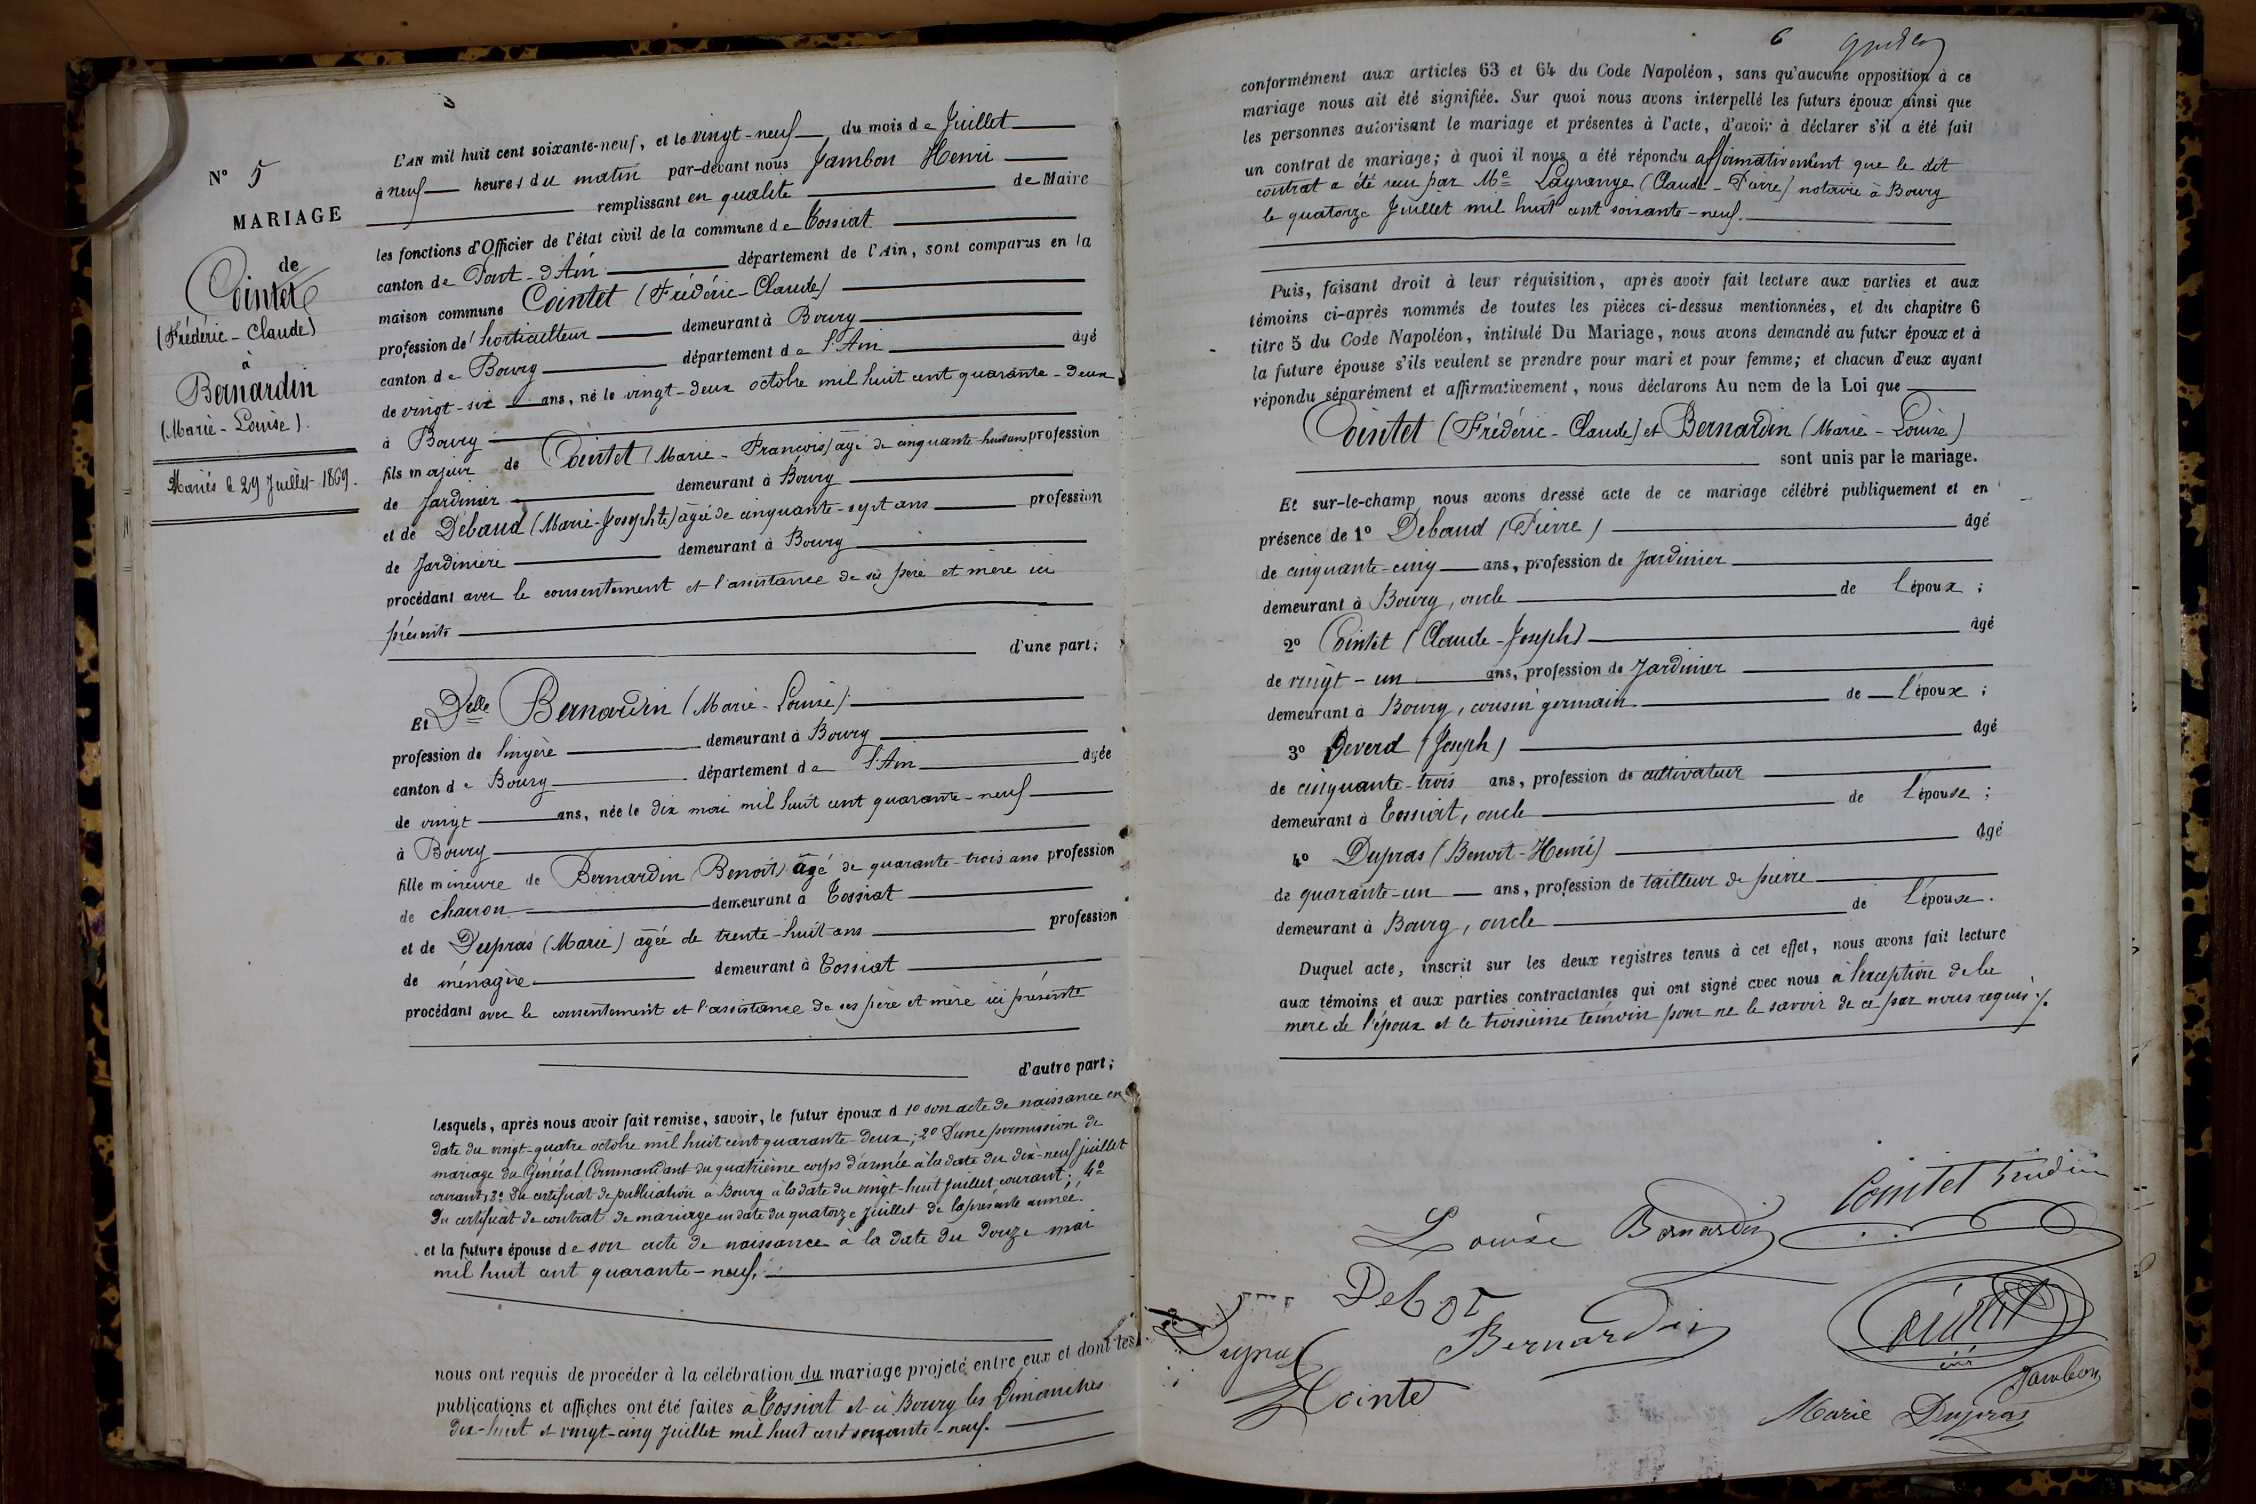 N° 5
MARIAGE
de
Cointet
(Frédéric - Claude)
à
Bernardin
(Marie - Louise).
Mariés le 29 Juillet 1869.
L'AN mil huit cent soixante-neuf, et le vingt-neuf du mois de Juillet
à neuf heures du matin par-devant nous Jambon Henri
remplissant en qualité de Maire
les fonctions d'Officier de l'état civil de la commune de Tossiat
canton de Pont-d'Ain département de l'Ain, sont comparus en la
maison commune Cointet (Frédéric-Claude)
profession de horticulteur demeurant à Bourg
canton de Bourg département de l'Ain âgé
de vingt-six ans, né le vingt-deux octobre mil huit cent quarante-deux
à Bourg
fils majeur de Cointet (Marie-François) âgé de cinquante-huit ans profession
de Jardinier demeurant à Bourg
et de Débaud (Marie-Josephte) âgée de cinquante-sept ans profession
de Jardinière demeurant à Bourg
procédant avec le consentement et l'assistance de ses père et mère ici
présents
d'une part;
Et Delle Bernardin (Marie-Louise)
profession de lingère demeurant à Bourg
canton de Bourg département de l'Ain âgée
de vingt ans, née le dix mai mil huit cent quarante-neuf
à Bourg
fille mineure de Bernardin (Benoit) âgé de quarante-trois ans profession
de charron demeurant à Tossiat
et de Dupras (Marie) âgée de trente-huit ans profession
de ménagère demeurant à Tossiat
procédant avec le consentement et l'assistance de ses père et mère ici présents
d'autre part;
Lesquels, après nous avoir fait remise, savoir, le futur époux d 1° son acte de naissance en
date du vingt-quatre octobre mil huit cent quarante-deux; 2° D'une permission de
mariage du Général Commandant du quatrième corps d'armée à la date du dix-neuf juillet
courant; 3° Du certificat de publication à Bourg à la date du vingt-huit juillet courant; 4°
Du certificat de contrat de mariage en date du quatorze Juillet de la présente année.
et la future épouse de son acte de naissance à la date du douze mai
mil huit cent quarante-neuf.
nous ont requis de procéder à la célébration du mariage projeté entre eux et dont les
publications et affiches ont été faites à Tossiat et à Bourg les Dimanches
dix-huit et vingt-cinq Juillet mil huit cent soixante-neuf.
6
conformément aux articles 63 et 64 du Code Napoléon, sans qu'aucune opposition à ce
mariage nous ait été signifiée. Sur quoi nous avons interpellé les futurs époux ainsi que
les personnes autorisant le mariage et présentes à l'acte, d'avoir à déclarer s'il a été fait
un contrat de mariage; à quoi il nous a été répondu affirmativement que le dit
contrat a été reçu par Me Lagrange (Claude-Pierre) notaire à Bourg
le quatorze Juillet mil huit cent soixante-neuf.
Puis, faisant droit à leur réquisition, après avoir fait lecture aux parties et aux
témoins ci-après nommés de toutes les pièces ci-dessus mentionnées, et du chapitre 6
titre 5 du Code Napoléon, intitulé Du Mariage, nous avons demandé au futur époux et à
la future épouse s'ils veulent se prendre pour mari et pour femme; et chacun d'eux ayant
répondu séparément et affirmativement, nous déclarons Au nom de la Loi que
Cointet (Frédéric-Claude) et Bernardin (Marie-Louise)
sont unis par le mariage.
Et sur-le-champ nous avons dressé acte de ce mariage célébré publiquement et en
présence de 1° Debaud (Pierre) âgé
de cinquante-cinq ans, profession de Jardinier
demeurant à Bourg, oncle de l'époux;
2° Cointet (Claude-Joseph) âgé
de vingt-un ans, profession de Jardinier
demeurant à Bourg, cousin germain de l'époux;
3° Deverd (Joseph) âgé
de cinquante-trois ans, profession de cultivateur
demeurant à Tossiat, oncle de l'épouse;
4° Dupras (Benoit-Henri) âgé
de quarante-un ans, profession de tailleur de pierre
demeurant à Bourg, oncle de l'épouse.
Duquel acte, inscrit sur les deux registres tenus à cet effet, nous avons fait lecture
aux témoins et aux parties contractantes qui ont signé avec nous à l'exception de la
mère de l'époux et le troisième témoin pour ne le savoir de ce par nous requis
Cointet
Louise Bernardin
Debot
Bernardin
Cointet
Dupras
Cointet
Jambon
Marie Dupras